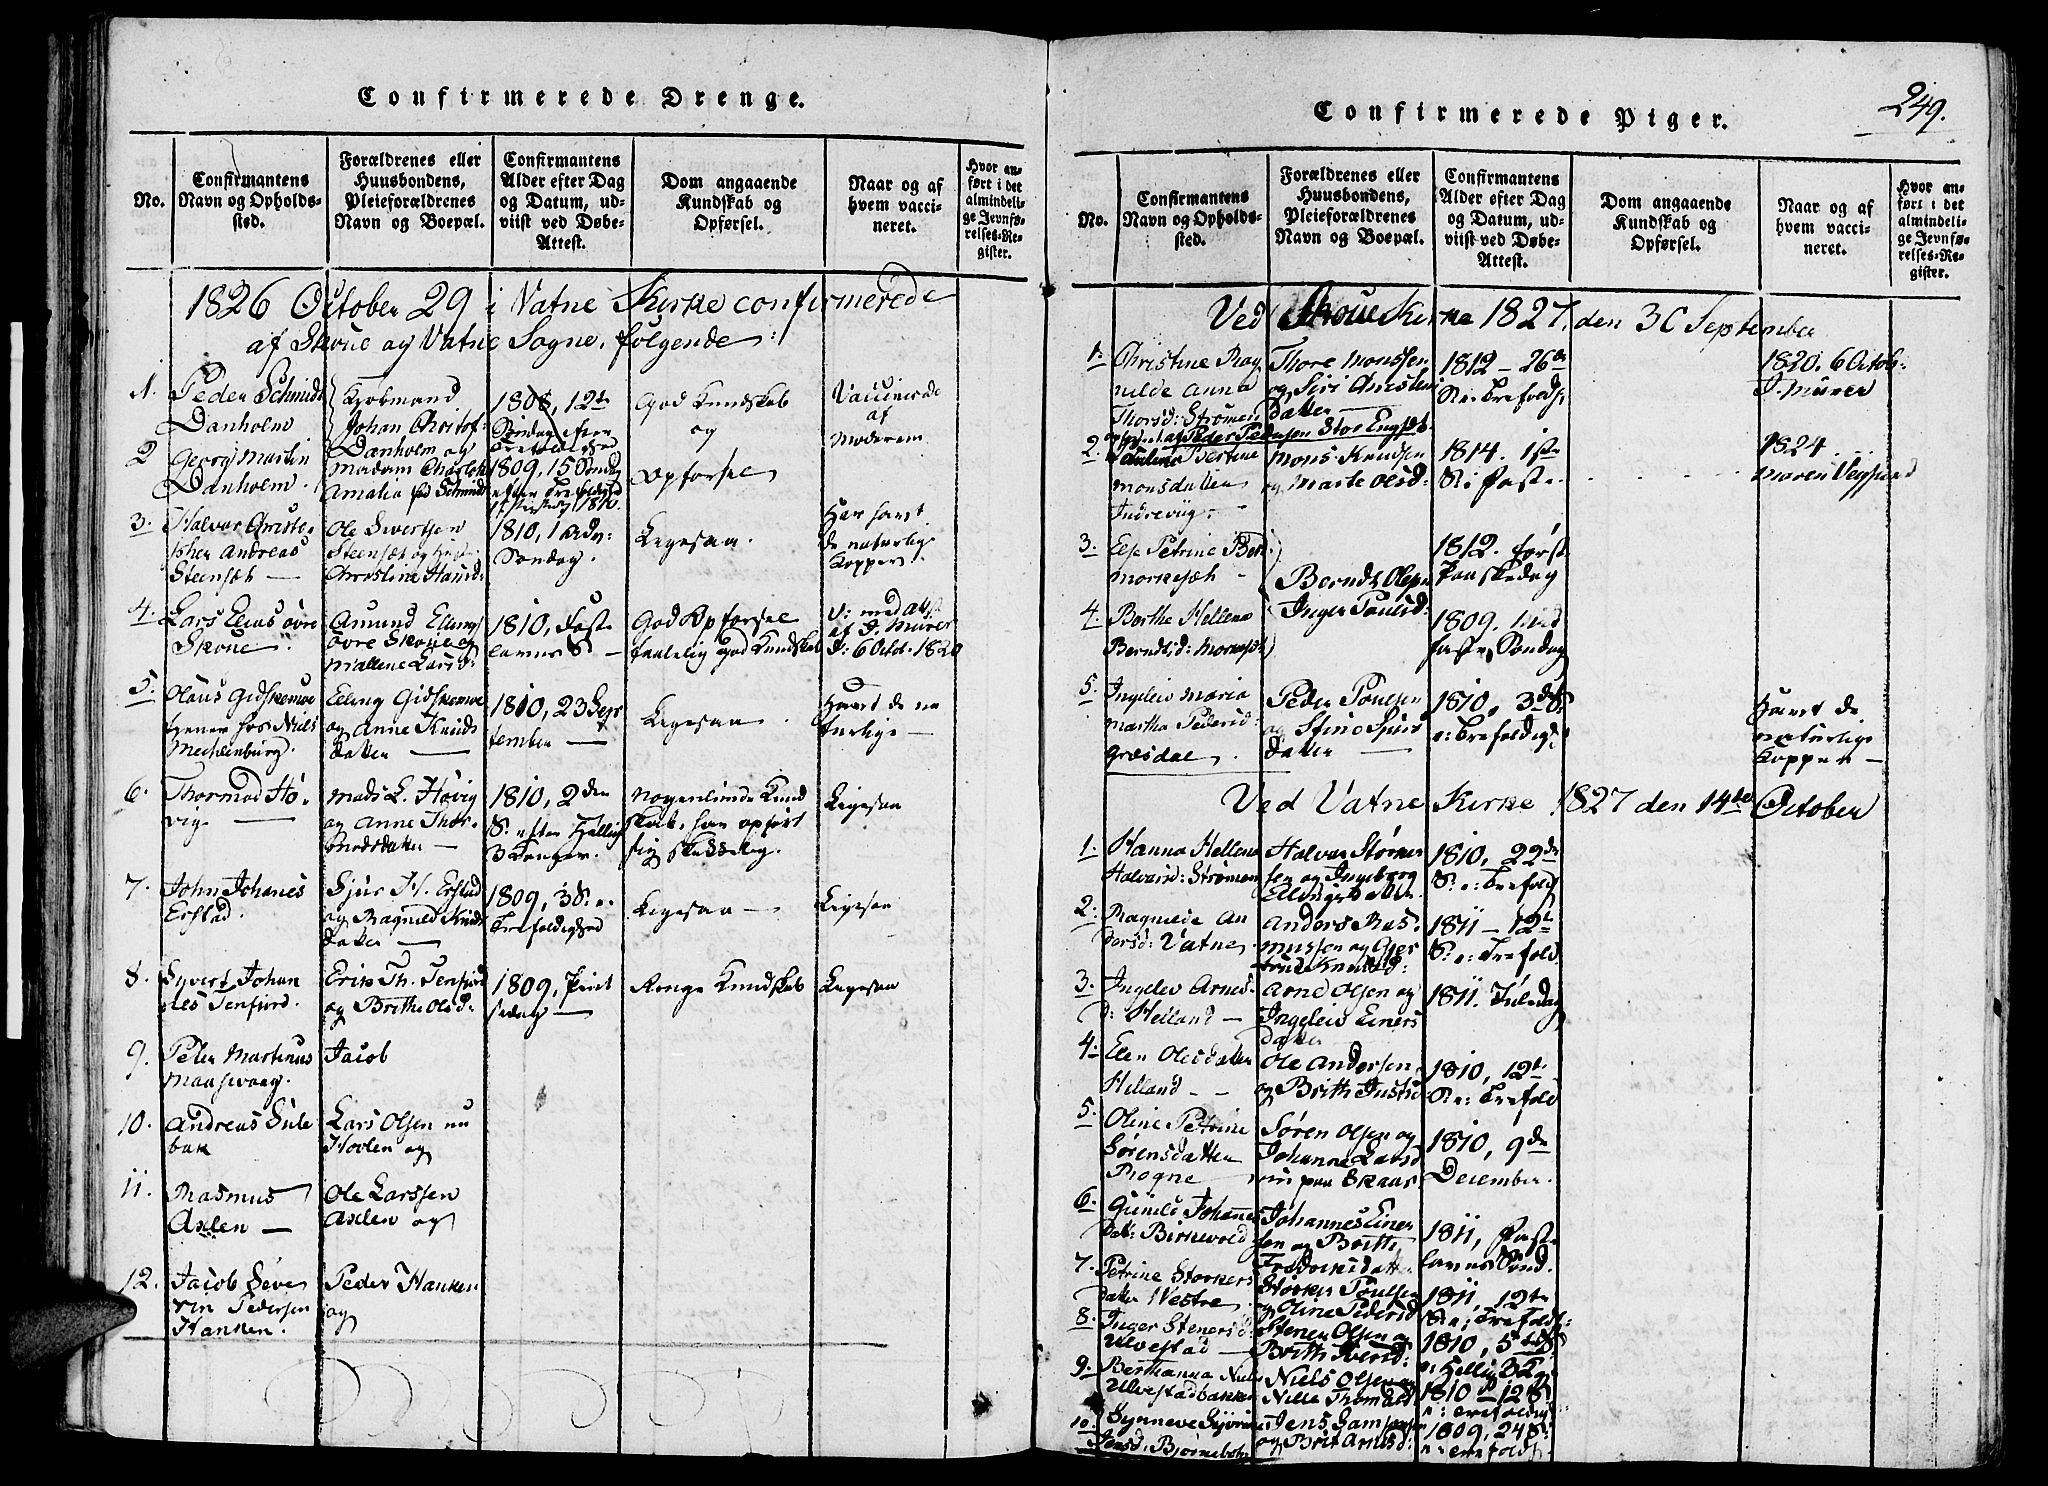 Confirmerede Drenge.
No.
Confirmantens
Navn og Opholds-
sted.
Forældrenes eller
Huusbondens,
Pleieforældrenes
Navn og Boepæl.
Confirmantens
Alder efter Dag
og Datum, ud-
viist ved Døbe-
Attest.
Dom angaaende
Kundskab og
Opførsel.
Naar og af
hvem vacci-
neret.
Hvor an-
ført i det
almindeli-
ge Jevnfø-
relses-Re-
gister.
1826 October 29 i Vatne Kirke confirmerede
af Skoue og Vatne Sogne, følgende:
1. Peder Schmidt
Danholm
Kjøbmand
Johan Christof
Danholm og
Madam Charlotte
Amalia fød Schmidt
1808, 12te
Søndag efter
Trefoldighed
God Kundskab
og
Opførsel
Vaccinerede
af
Moderen
2 Georg Martin
Danholm.
1809, 15 Søndag
efter Trefoldighed
3. Halvar Christo-
pher Andreas
Steensæt —
Ole Sivertsen
Steensæt og
Christine Hansd:
1810, 1 Adv:
Søndag.
Ligesaa.
Har havt
de naturlige
Kopper.
4. Lars Elias øvre
Skoue.
Amund Elling
øvre Skoue og
Mallene Larsd:
1810, Faste
lavns S —
God Opførsel
taalelig god Kundskab
V: med Att.
af J. Murer
d: 6 Octob. 1820
5. Olaus Gidskemoe
tjener hos Niels
Mechlenburg.
Elling Gidskemoe
og Anne Knuds
datter —
1810, 23 Sep
tember —
Ligesaa.
Havt de na
turlige —
6. Thormod Hø-
vig —
Mads L. Høvig
og Anne Thor-
modsdatter —
1810, 2den
S. efter Hellig
3 Konger.
Nogenlunde Kund
skab, har opført
sig skikkelig.
Ligesaa
7. John Johanes
Erstad.
Sjur H. Erstad
og Ragnild Knuds
datter —
1809, 3 S. e.
Trefoldighed
Ligesaa —
Ligesaa
8. Syvert Johan
nes Tenfjord.
Erik Th. Tenfjord
og Brithe Olsd:
1809, Pint
sedag —
Ringe Kundskab
Ligesaa
9. Peter Martinus
Maasevaag.
Jacob
10. Andreas Sule
bak
Lars Olsen nu
Hovlen og
11. Rasmus
Axlen —
Ole Larssen
Axlen og
12. Jacob Seve
rin Pedersen
Hanken.
Peder Hanken
og
249.
Confirmerede Piger.
No.
Confirmantens
Navn og Opholds-
sted.
Forældrenes eller
Huusbondens,
Pleieforældrenes
Navn og Boepæl.
Confirmantens
Alder efter Dag
og Datum, ud-
viist ved Døbe-
Attest.
Dom angaaende
Kundskab og
Opførsel.
Naar og af
hvem vacci-
neret.
Hvor an-
ført i det
almindeli-
ge Jevnfø-
relses-Re-
gister.
Ved Skoue Kirke 1827, den 30 September
1. Christine Rag
nilde Anna
Thorsd: Strømen
Thore Monssen
og Siri Christens
Datter —
1812 — 26de
S. e: Trefold:
1820. 6 Octob:
J. Murer
Peder Pedersen Stor Engset
2. Paulina Bertine
Monsdatter
Indrevig —
Mons Knudsen
og Marte Olsd:
1814. 1ste
S. i Faste.
1824.
Maren
3. Else Petrine Ber
Morkesæt —
Berndt Olsen
Inger Poulsd:
1812. først
Paaskedag
4. Berthe Hellena
Berndtsd: Morkesæt
1809.
faste Søndag
5. Ingelev Maria
Martha Pedersd:
Græsdal.
Peder Poulsen
og Stine Sjurs
datter —
1810, 3de S.
e: Trefoldigh:
Havt de
naturlige
Kopper —
Ved Vatne Kirke 1827 den 14de October
1. Hanna Hellena
Halvarsd: Strømen
Halvar Størker
sen og Ingeborg
Ellingsdatter
1810, 22de
S. e: Trefold
2. Ragnilde An
dersd: Vatne
Anders Ras-
mussen og Gjer
trud Knudsd:
1811 — 12te
S. e: Trefold.
3. Ingelev Arnes-
d: Helland —
Arne Olsen og
Ingelev Einers
datter
1811. Juledag
4. Elen Olesdatter
Helland —
Ole Andersen,
og Brithe Justsd
1810, 12te
S. e: Trefold
5. Oline Petrine
Sørensdatter
Rogne
Søren Olsen og
Johanne Larsd
nu paa Skaar
1810, 9de
December.
6. Gunild Johannes
dat: Birkevold
Johannes Einer
sen og Brithe
Fredriksdatter
1811, Faste
lavns Sønd.
7. Petrine Størkers
datter Vestre
Størker Poulsen
og Oline Pedersd
1811, 12te
S. e: Trefoldh:
8. Inger Stenersd:
Ulvestad —
Stener Olsen og
Brithe Iversd:
1810, 5te S.
e: Hellig 3 K
9. Berthanna Niels
Ulvestadbakken
Niels Olsen og
Nille Thomasd
1810 — 12 S
e: Trefoldigh
10. Synneve Syvrine
Jensd: Bjørnebotn
Jens Samsonsen
og Brit Arnesd:
1809, 24 S:
e: Trefoldh.